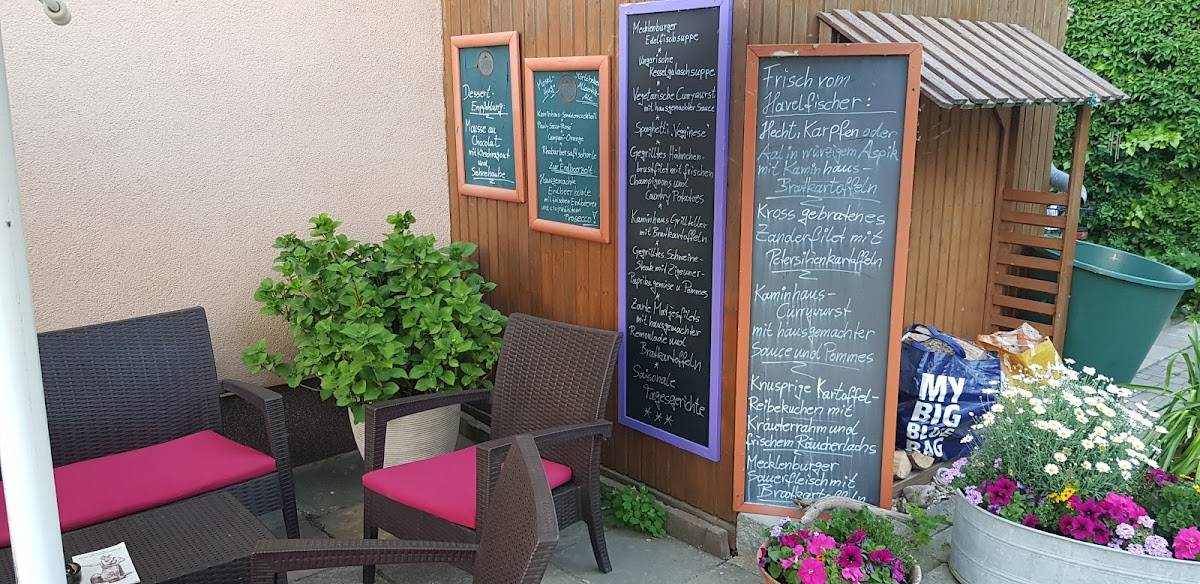 Dessert-
Empfehlung:
Mousse au
Chocolat
mit Kirschragout
und
Sahnehaube
Kaminhaus-
Campari-Orange
Rhabarbersaftschorle
zur Erdbeerzeit
Hausgemachte
Erdbeerbowle
mit frischen Erdbeeren
Prosecco!
Mecklenburger
Edelfischsuppe
*
Ungarische
Kesselgulaschsuppe
*
Vegetarische Currywurst
mit hausgemachter Sauce
*
Spaghetti "Vegginese"
*
Gegrilltes Hähnchen-
brustfilet mit frischen
Champignons und
Country Potatoes
*
Kaminhaus Grillteller
mit Bratkartoffeln
*
Gegrilltes Schweine-
Steak mit Zigeuner-
Paprika gemüse u. Pommes
*
Zarte Matjesfilets
mit hausgemachter
Remoulade und
Bratkartoffeln
*
Saisonale
Tagesgerichte
***
Frisch vom
Havelfischer:
Hecht, Karpfen oder
Aal in würzigem Aspik
mit Kaminhaus-
Bratkartoffeln
Kross gebratenes
Zanderfilet mit
Petersilienkartoffeln
Kaminhaus-
Currywurst
mit hausgemachter
Sauce und Pommes
Knusprige Kartoffel-
Reibekuchen mit
Kräuterrahm und
frischem Räucherlachs
Mecklenburger
Sauerfleisch mit
Bratkartoffeln
MY
BIG
BLUE
BAG